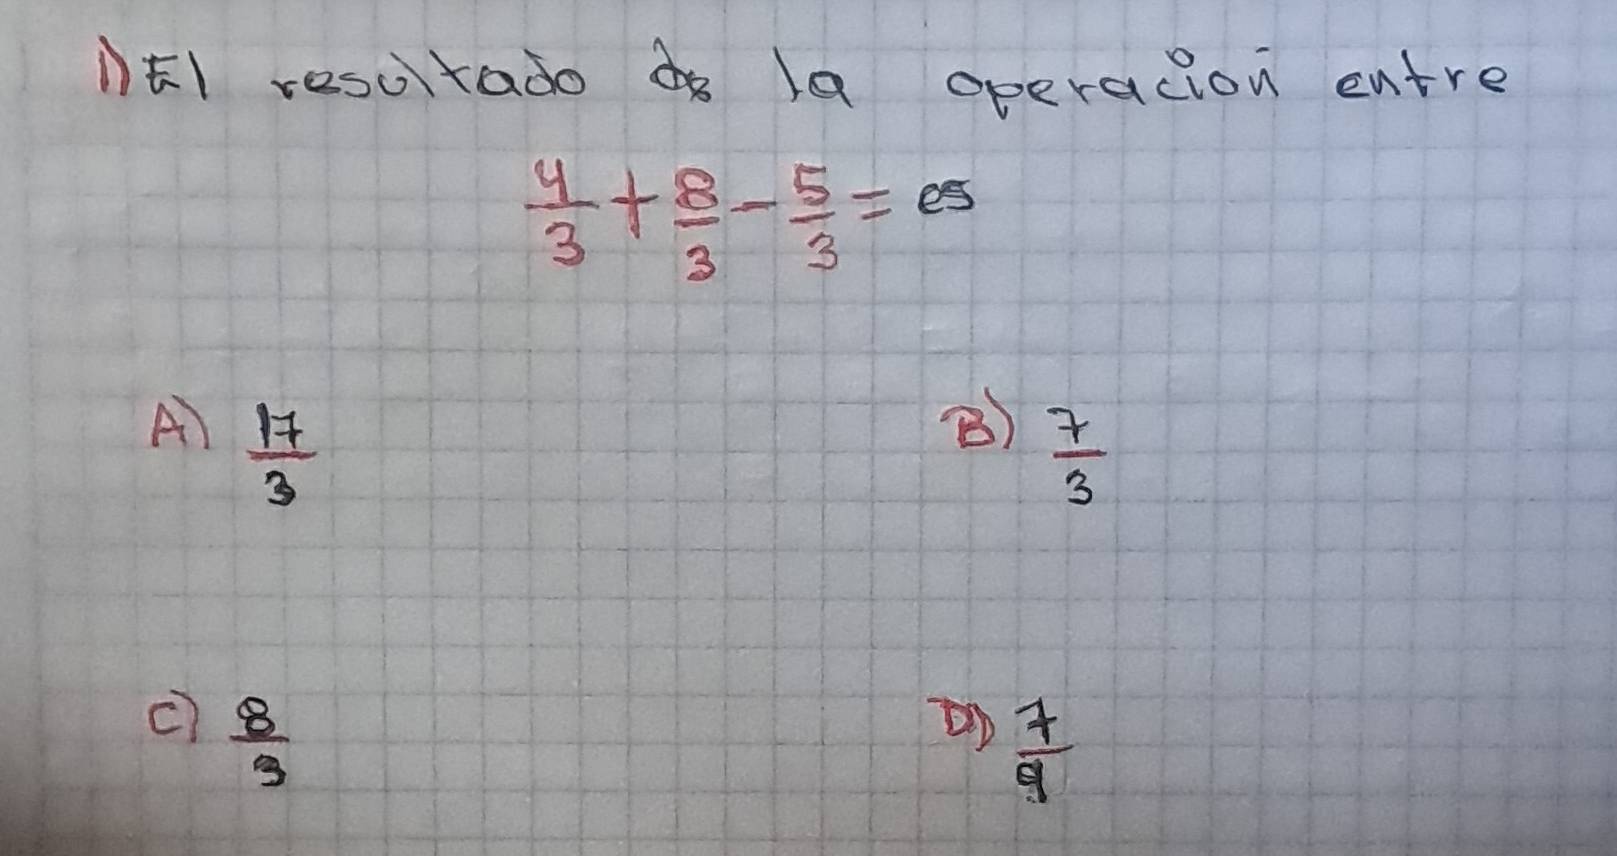 1) El resultado de la operación entre
4/3 + 8/3 - 5/3 = es
A) 17/3 B) 7/3
C) 8/3 D) 7/9